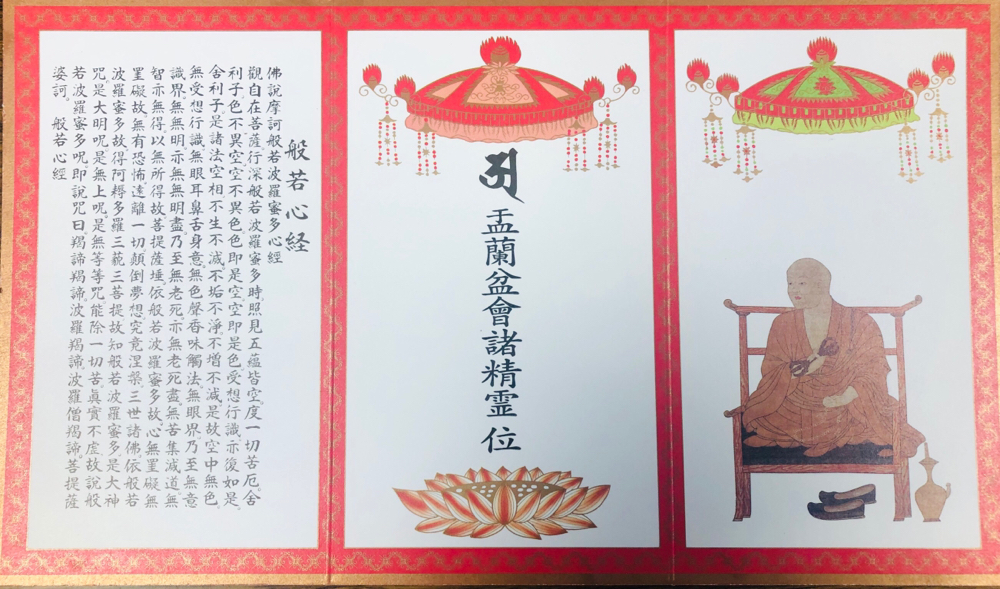 盂蘭盆會諸精霊位
般若心経
佛說摩訶般若波羅蜜多心經
觀自在菩薩。行深般若波羅蜜多時。照見五蘊皆空。度一切苦厄。舍
利子。色不異空。空不異色。色即是空。空即是色。受想行識。亦復如是。
舍利子。是諸法空相。不生不滅。不垢不淨。不增不減。是故空中。無色。
無受想行識。無眼耳鼻舌身意。無色聲香味觸法。無眼界。乃至無意
識界。無無明。亦無無明盡。乃至無老死。亦無老死盡。無苦集滅道。無
智亦無得。以無所得故。菩提薩埵。依般若波羅蜜多故。心無罣礙。無
罣礙故。無有恐怖。遠離一切顛倒夢想。究竟涅槃。三世諸佛。依般若
波羅蜜多故。得阿耨多羅三藐三菩提。故知般若波羅蜜多。是大神
呪。是大明呪。是無上呪。是無等等呪。能除一切苦。眞實不虛。故說般
若波羅蜜多呪。即說呪曰。羯諦羯諦。波羅羯諦。波羅僧羯諦。菩提薩
婆訶。 般若心經